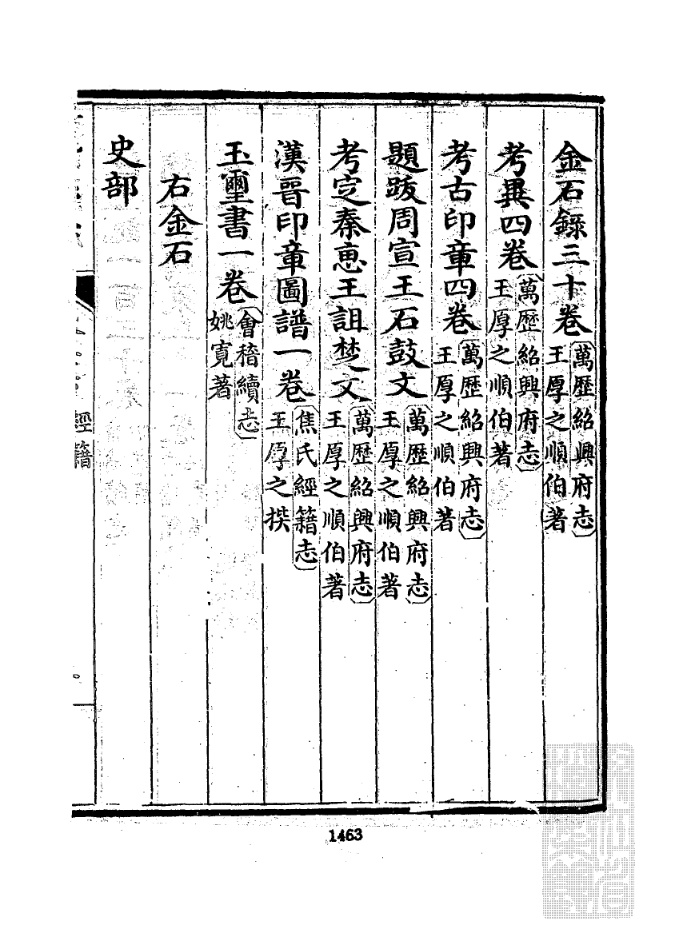 金石錄三十卷萬歷紹興府志王厚之順伯著
考異四卷萬歷紹興府志王厚之順伯著
考古印章四卷萬歷紹興府志王厚之順伯著
題跋周宣王石鼓文萬歷紹興府志王厚之順伯著
考定秦惠王詛楚文萬歷紹興府志王厚之順伯著
漢晉印章圖譜一卷焦氏經籍志王厚之撰
玉璽書一卷會稽續志姚寬著
右金石
史部
經籍
1463